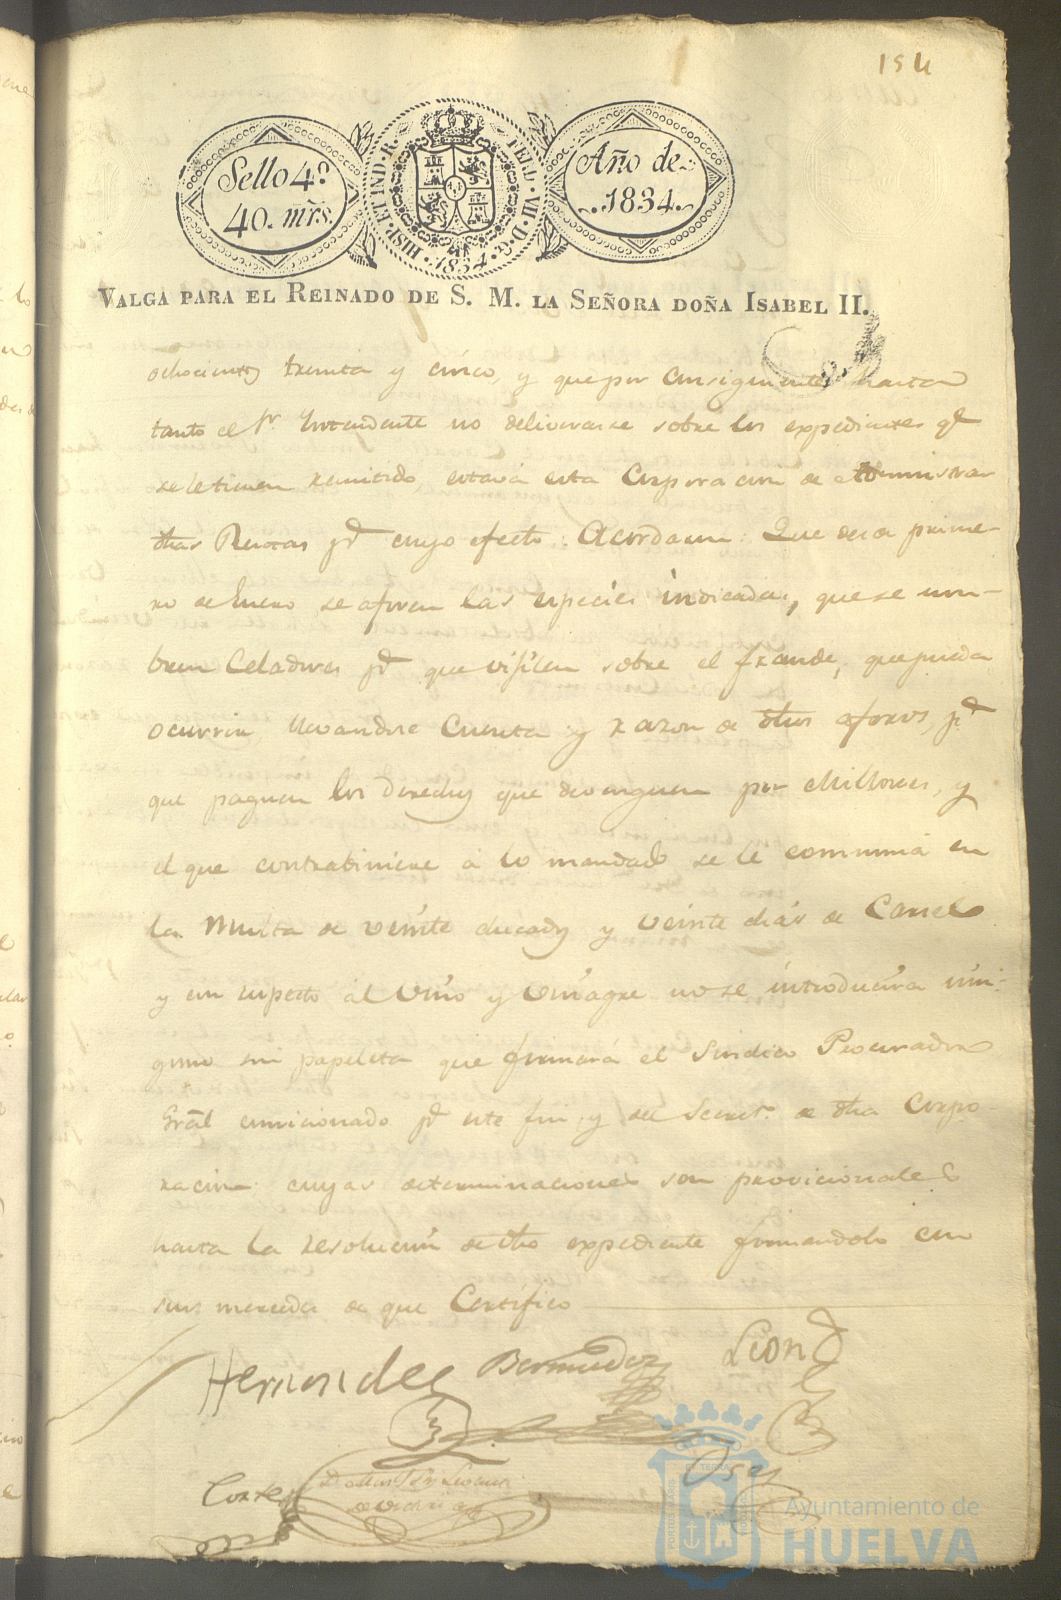 154
Sello 4º
40. mrs.
HISP. ET IND. R.
FERD. VII. D. G.
1834
Año de
1834.
VALGA PARA EL REINADO DE S. M. LA SEÑORA DOÑA ISABEL II.
ochocientos treinta y cinco, y que por consiguiente hasta
tanto el Sr Intendente no deliverase sobre los expedientes qe
se le tienen remitido, estava esta Corporacion de Administrar
dhas Rentas pa cuyo efecto Acordaron: Que desde prime-
ro de Enero se aforen las especies indicadas, que se nom-
bren Celadores pa que visilen sobre el fraude, que pueda
ocurrir, llevandose Cuenta y razon de dhos aforos, pa
que paguen los Derechos que devenguen por Millones, y
el que contrabiniere á lo mandado se le comminá en
la Multa de veinte ducados y veinte dias de Carcel
y con respecto al Vino y Vinagre no se introducira nin-
guno sin papeleta que firmará el Sindico Procurador
Gral comicionado pa este fin, y del Secreto de dha Corpo-
racion cuyas determinaciones son provicionales
hasta la resolucion de dho expediente firmandolo con
sus mercedes de que Certifico
Hernandez Bermudez Leon
Cortes
Ayuntamiento de
HUELVA